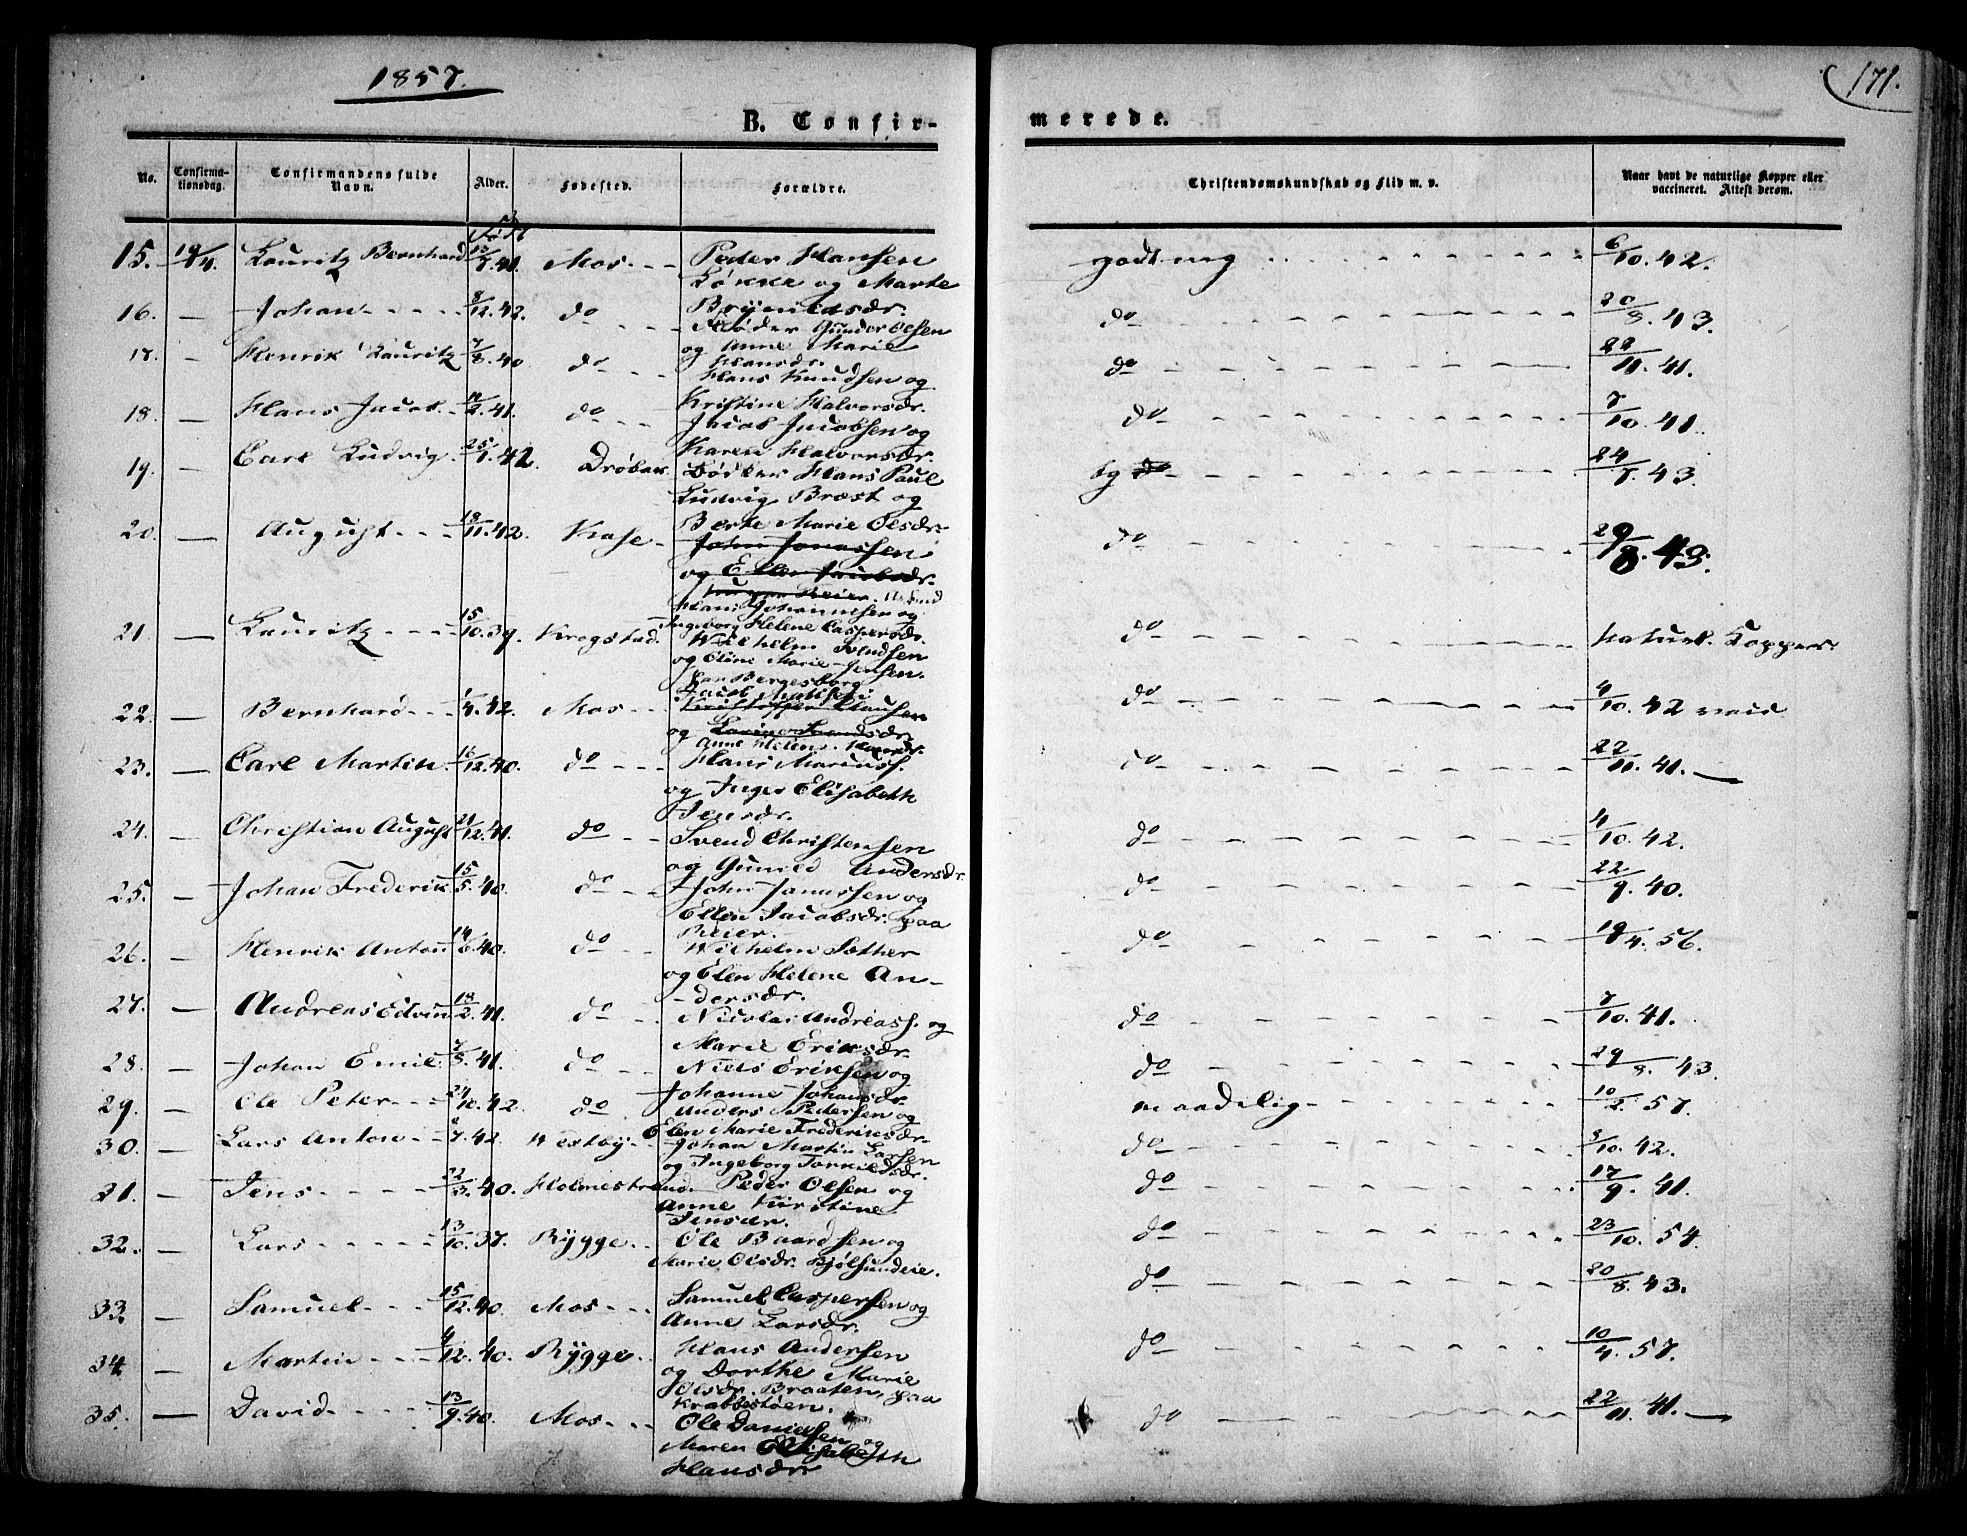 1857.
171.
B. Confir-
merede.
No.
Confirma-
tionsdag.
Confirmandens fulde
Navn.
Alder.
Fødested.
Forældre.
Christendomskundskab og Flid m. v.
Naar havt de naturlige Kopper eller
vaccineret. Attest derom.
Født
15. 19/4. Lauritz Bernhard 41. Mos - - - Peder Hansen godt 6/10. 42.
Løkke og Marte
16. — Johan - - - - 8/12. 42. do - - - Brynildsdr. do 20/8. 43.
Gunder Olsen
17. — Henrik Lauritz 7/8. 40 do - - - og Anne Marie do 22/11. 41.
Hansdr.
Hans Knudsen og
18. — Hans Jacob - 41. do - - - Kristine Halvorsdr. do 7/10. 41.
Jacob Jacobsen og
19. Carl Ludvig 25/1. 42. Drøbak Karen Halvorsdr. tg do 24/7. 43.
Hans Paul
Ludvig Bræst og
20. — August - - - 18/11. 42. Berte Marie Olsdr. do 29/8. 43.
John Jonassen
og Ellen Jacobsdr.
Hans Johannesen og
Ingeborg Helene Caspersdr.
21. — Lauritz - - - 15/10. 39. Krogstad. Wilhelm do naturl. Kopper.
og Eline Marie Jensen.
Jacob
22. — Bernhard - - - 42. Mos - - Kristoffer Clausen do 4/10. 42
og
Anne Helene
23. — Carl Martin 16/12. 40. do - - - Hans do 22/11. 41. —
og Inger Elisabeth
Jensdr.
24. — Christian August 21/12. 41. do - - Svend Christensen do 4/10. 42.
og Gunild Andersdr.
25. — Johan Frederik 15/5. 40. do - - - John Jonassen og do 22/9. 40.
Ellen Jacobsdr. paa
Reier.
26. — Henrik Anton 14/6. 40. do - - Wilhelm do 19/4. 56.
og Elen Helene An-
-dersdr.
27. — Andreas Edvin 18/2. 41. do - - Nicolai Andreass. og do 7/10. 41.
Marie Eriksdr.
28. — Johan Emil 41. do - - Niels Eriksen og do 29/8. 43.
Johanne Johansdr.
29. — Ole Peter - - 24/10. 42. do - - Anders Pedersen og maadelig 10/2. 57.
Elen Marie Frederiksdr.
30. — Lars Anton - - 42. Westby - Johan Martin Larsen do 42.
og Ingeborg Torkildsdr.
31. — Jens - - - - 22/3. 40. Holmestrand. Peder Olsen og do 17/9. 41.
Anne Kirstine
Jensdr.
32. — Lars - - - - 13/10. 37. Rygge - - Ole Baardsen og do 23/10. 54.
Marie Olsdr. Bjølsundeie.
33. — Samuel - - - 15/12. 40. Mos - - - Samuel Caspersen og do 20/8. 43.
Anne Larsdr.
34 — Martin - - - 12. 40. Rygge - - Hans Andersen do 10/4. 57.
og Dorthe Marie
Olsdr. Braaten, paa
Krabbestøen.
35. — David - - - 13/9. 40. Mos - - - Ole Danielsen og do 22/11. 41. —
Maren Elisabeth
Hansdr